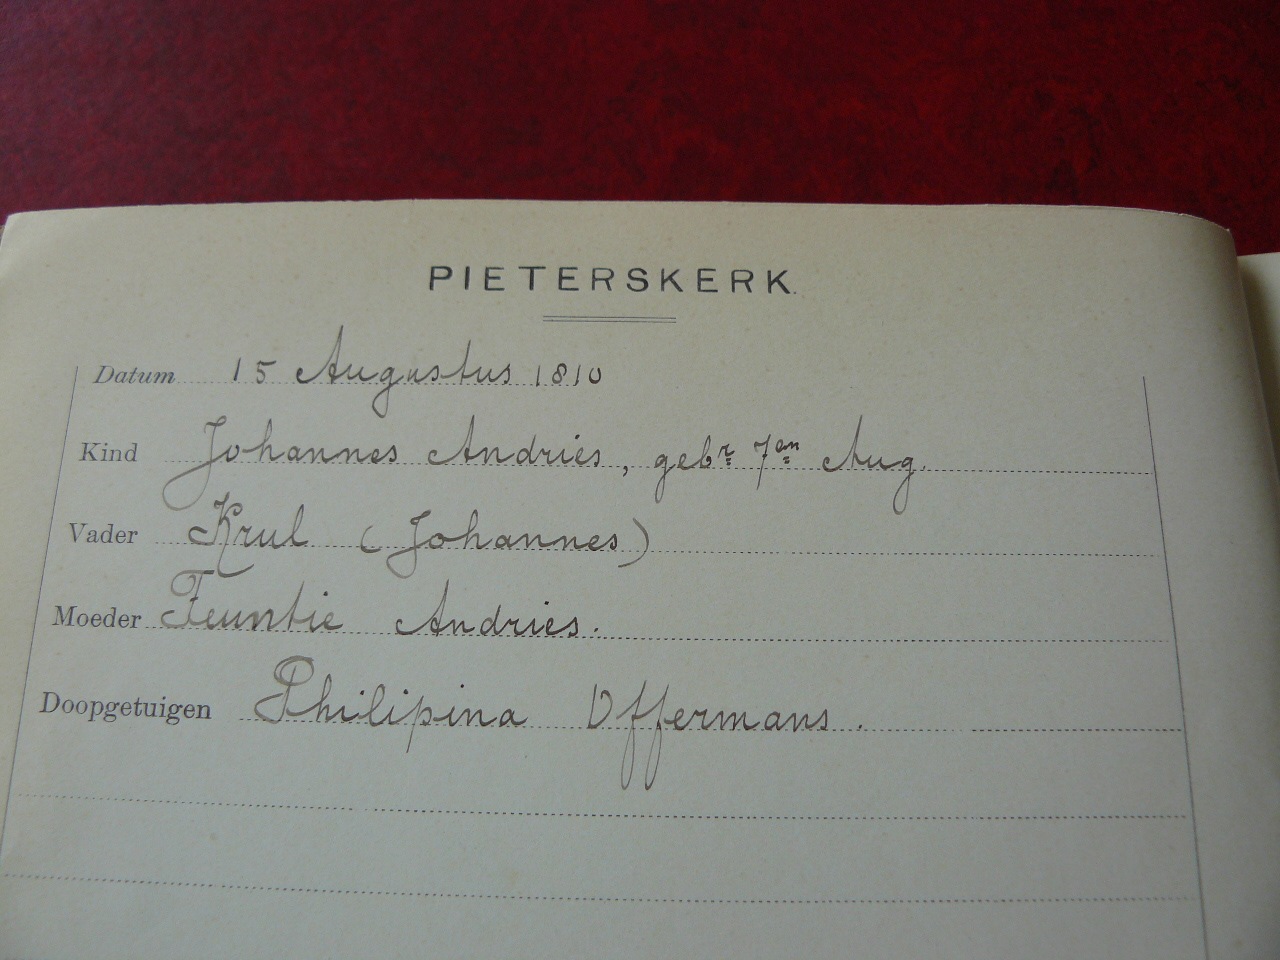 PIETERSKERK.
Datum 15 Augustus 1810
Kind Johannes Andries, gebr 7en Aug.
Vader Krul (Johannes)
Moeder Teuntie Andries.
Doopgetuigen Philipina Offermans.